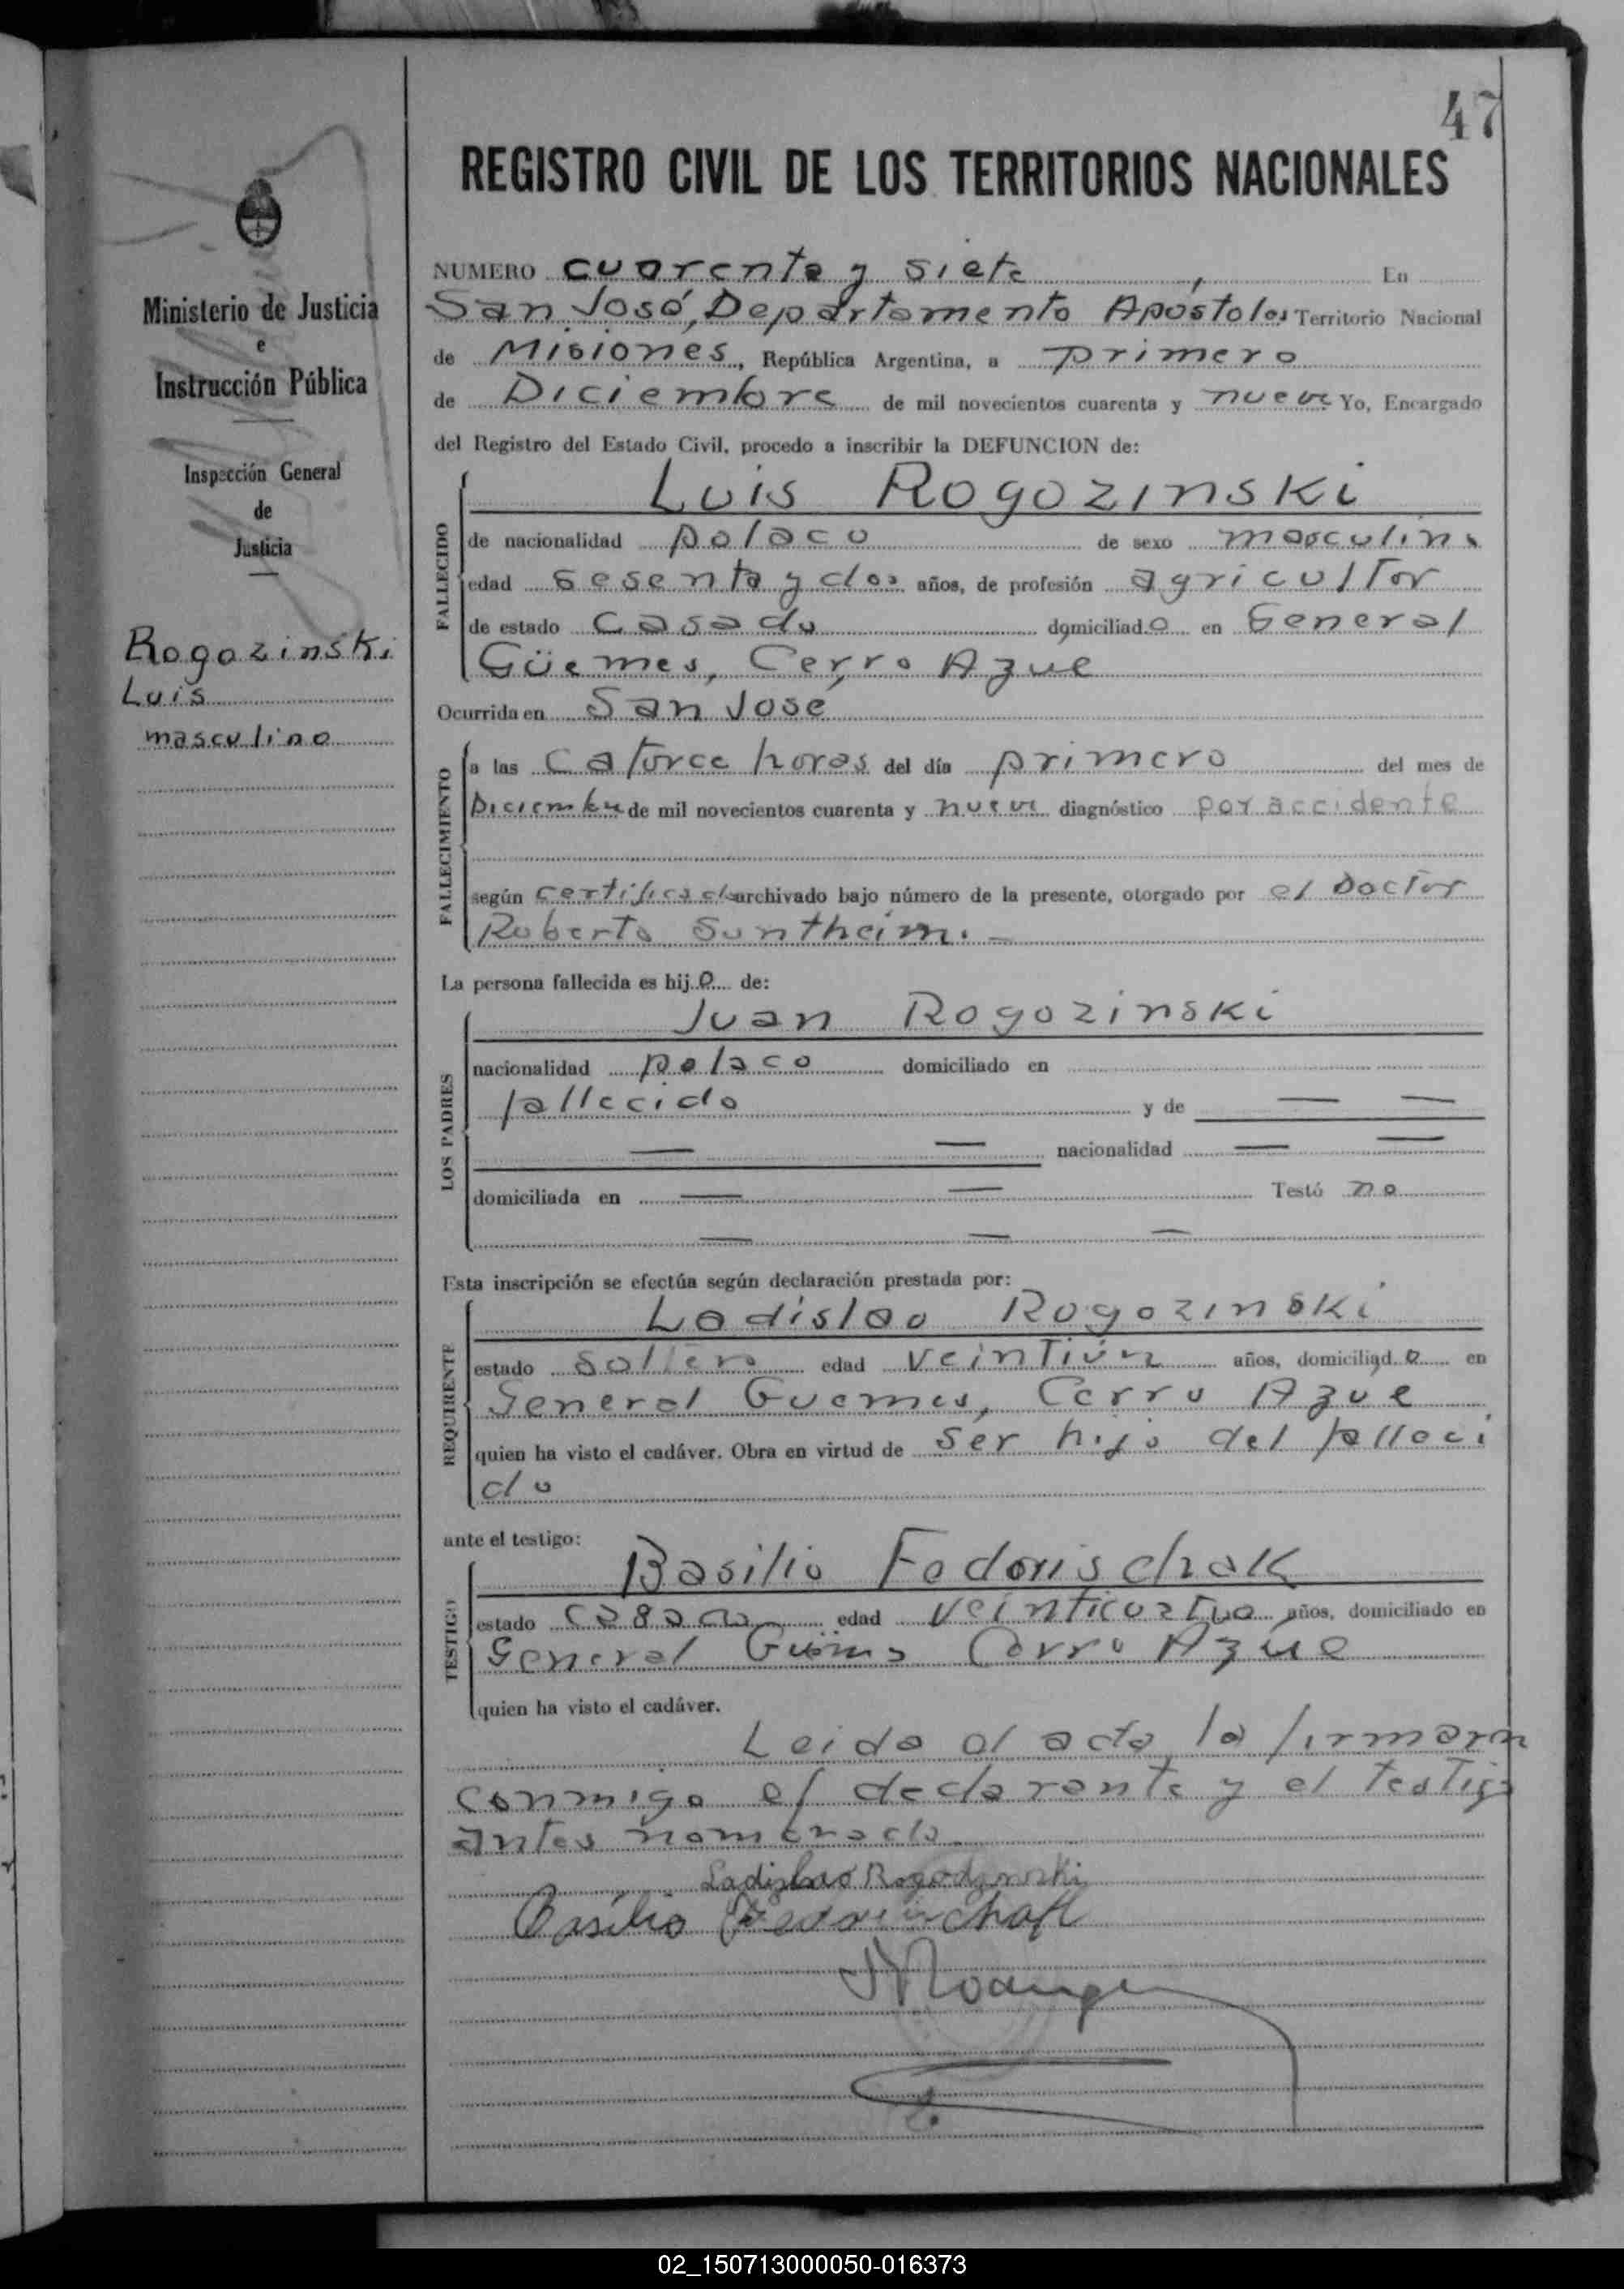 47
REGISTRO CIVIL DE LOS TERRITORIOS NACIONALES
Ministerio de Justicia
e
Instrucción Pública
Inspección General
de
Justicia
Rogozinski
Luis
masculino
NUMERO cuarenta y siete, En
San José, Departamento Apóstoles Territorio Nacional
de Misiones, República Argentina, a primero
de Diciembre de mil novecientos cuarenta y nueve Yo, Encargado
del Registro del Estado Civil, procedo a inscribir la DEFUNCION de:
FALLECIDO
Luis Rogozinski
de nacionalidad polaco de sexo masculino
edad sesenta y dos años, de profesión agricultor
de estado casado domiciliado en General
Güemes, Cerro Azul
Ocurrida en San José
FALLECIMIENTO
a las catorce horas del día primero del mes de
Diciembre de mil novecientos cuarenta y nueve diagnóstico por accidente
según certificado archivado bajo número de la presente, otorgado por el Doctor
Roberto Suntheim. —
La persona fallecida es hijo de:
LOS PADRES
Juan Rogozinski
nacionalidad polaco domiciliado en
fallecido y de — —
— — nacionalidad — —
domiciliada en — — Testó no
— — —
Esta inscripción se efectúa según declaración prestada por:
REQUIRENTE
Ladislao Rogozinski
estado soltero edad veintiún años, domiciliado en
General Guemes, Cerro Azul
quien ha visto el cadáver. Obra en virtud de ser hijo del falleci
do
ante el testigo:
TESTIGO
Basilio Fedorischak
estado casado edad veinticuatro años, domiciliado en
General Güemes Cerro Azul
quien ha visto el cadáver.
Leida el acta la firmaron
conmigo el declarante y el testigo
antes nombrado.
Ladislao Rogodzinski
Basilio
02_150713000050-016373